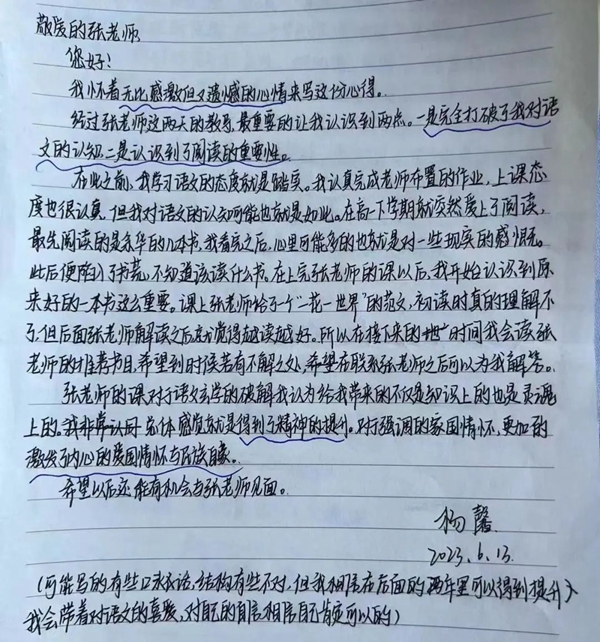 敬爱的张老师
您好!
我怀着无比感激但又遗憾的心情来写这份心得。
经过张老师这两天的教导,最重要的让我认识到两点。一是完全打破了我对语
文的认知,二是认识到了阅读的重要性。
在此之前,我学习语文的态度就是踏实。我认真完成老师布置的作业,上课态
度也很认真,但我对语文的认知可能也就是如此。在高一下学期就突然爱上了阅读,
最先阅读的是余华的几本书,我看完之后,心里可能多的也就是对一些现实的感慨。
此后便陷入了书荒,不知道该读什么书,在上完张老师的课以后,我开始认识到原
来好的一本书这么重要。课上张老师给了一个“一花一世界”的范文,初读时真的理解不
了,但后面张老师解读之后就觉得越读越好。所以在接下来的时间我会读张
老师的推荐书目,希望到时候若有不解之处,希望在联系张老师之后可以为我解答。
张老师的课对于语文玄学的破解我认为给我带来的不仅是知识上的也是灵魂
上的。总体感觉就是得到了精神的提升。对于强调的家国情怀,更加的
激发了内心的爱国情怀与民族自豪。
希望以后还能有机会与张老师见面。
杨馨
2023.6.13
(可能写的有些口水话,结构有些不对,但我相信在后面的两年里可以得到提升,
我会带着对语文的喜爱,对自己的自信相信自己肯定可以的)